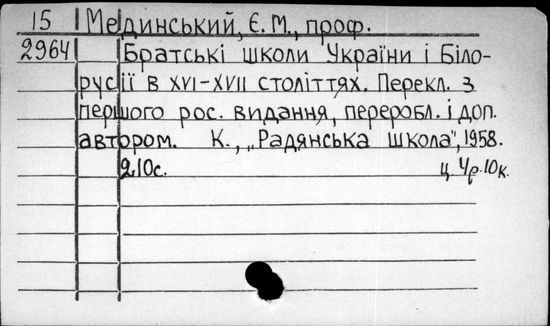 15 Мединський, Є. М., проф.
2964 Братські школи України і Біло-
русії в XVI-XVII століттях. Перекл. з
першого рос. видання, переробл. і доп.
автором. К., „Радянська школа", 1958.
210с. ц. 4р. 10к.